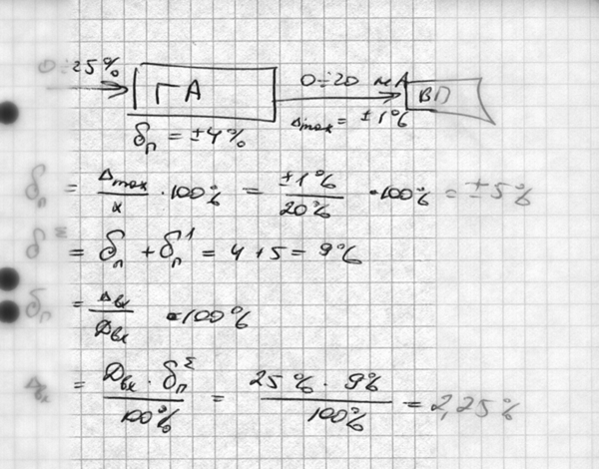 0÷25% ГА 0÷20 мА ВП
δп = ±4% Δmax = ±1%
δп = Δmax / x · 100% = ±1% / 20% · 100% = ±5%
δΣ = δп + δп1 = 4 + 5 = 9%
δп = Δвх / Двх · 100%
Δвх = Двх · δпΣ / 100% = 25% · 9% / 100% = 2,25%